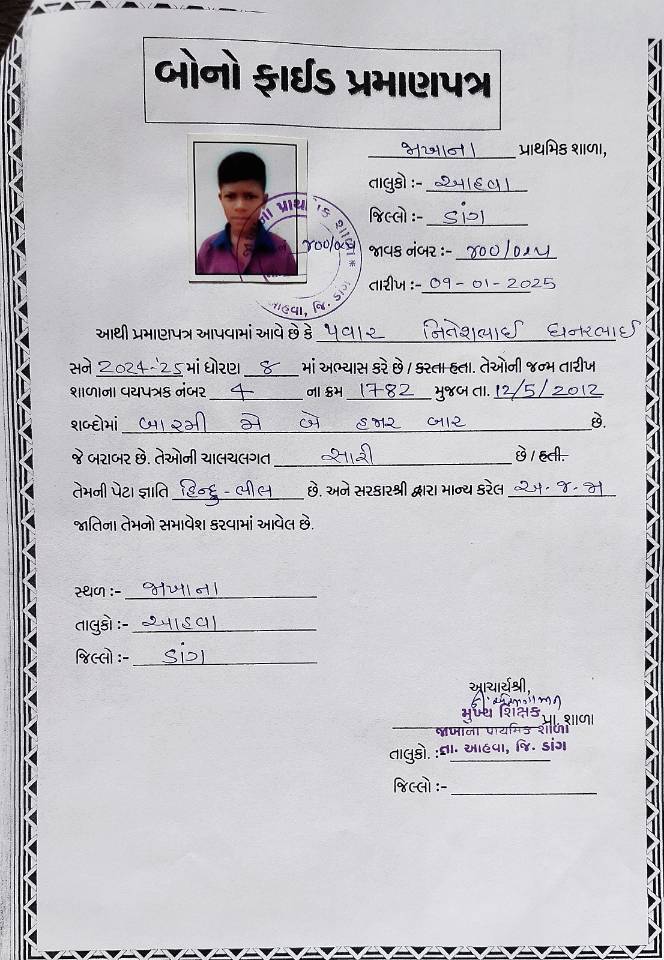 બોનો ફાઈડ પ્રમાણપત્ર
જાખાના પ્રાથમિક શાળા,
તાલુકો :- આહવા
જિલ્લો :- ડાંગ
જાવક નંબર :- ૪૦૦/૦૨૫
તારીખ :- 09-01-2025
આથી પ્રમાણપત્ર આપવામાં આવે છે કે પવાર નિતેશભાઈ ધનરભાઈ
સને 2024-'25 માં ધોરણ ૪ માં અભ્યાસ કરે છે / કરતા હતા. તેઓની જન્મ તારીખ
શાળાના વયપત્રક નંબર 4 ના ક્રમ 1782 મુજબ તા. 12/5/2012
શબ્દોમાં બારમી મે બે હજાર બાર છે.
જે બરાબર છે. તેઓની ચાલચલગત સારી છે / હતી.
તેમની પેટા જ્ઞાતિ હિન્દુ-ભીલ છે. અને સરકારશ્રી દ્વારા માન્ય કરેલ અ.જ.જા
જાતિના તેમનો સમાવેશ કરવામાં આવેલ છે.
સ્થળ :- જાખાના
તાલુકો :- આહવા
જિલ્લો :- ડાંગ
આચાર્યશ્રી,
મુખ્ય શિક્ષક
પ્રા. શાળા
જાખાના પ્રાથમિક શાળા
તાલુકો. :- તા. આહવા, જિ. ડાંગ
જિલ્લો :-